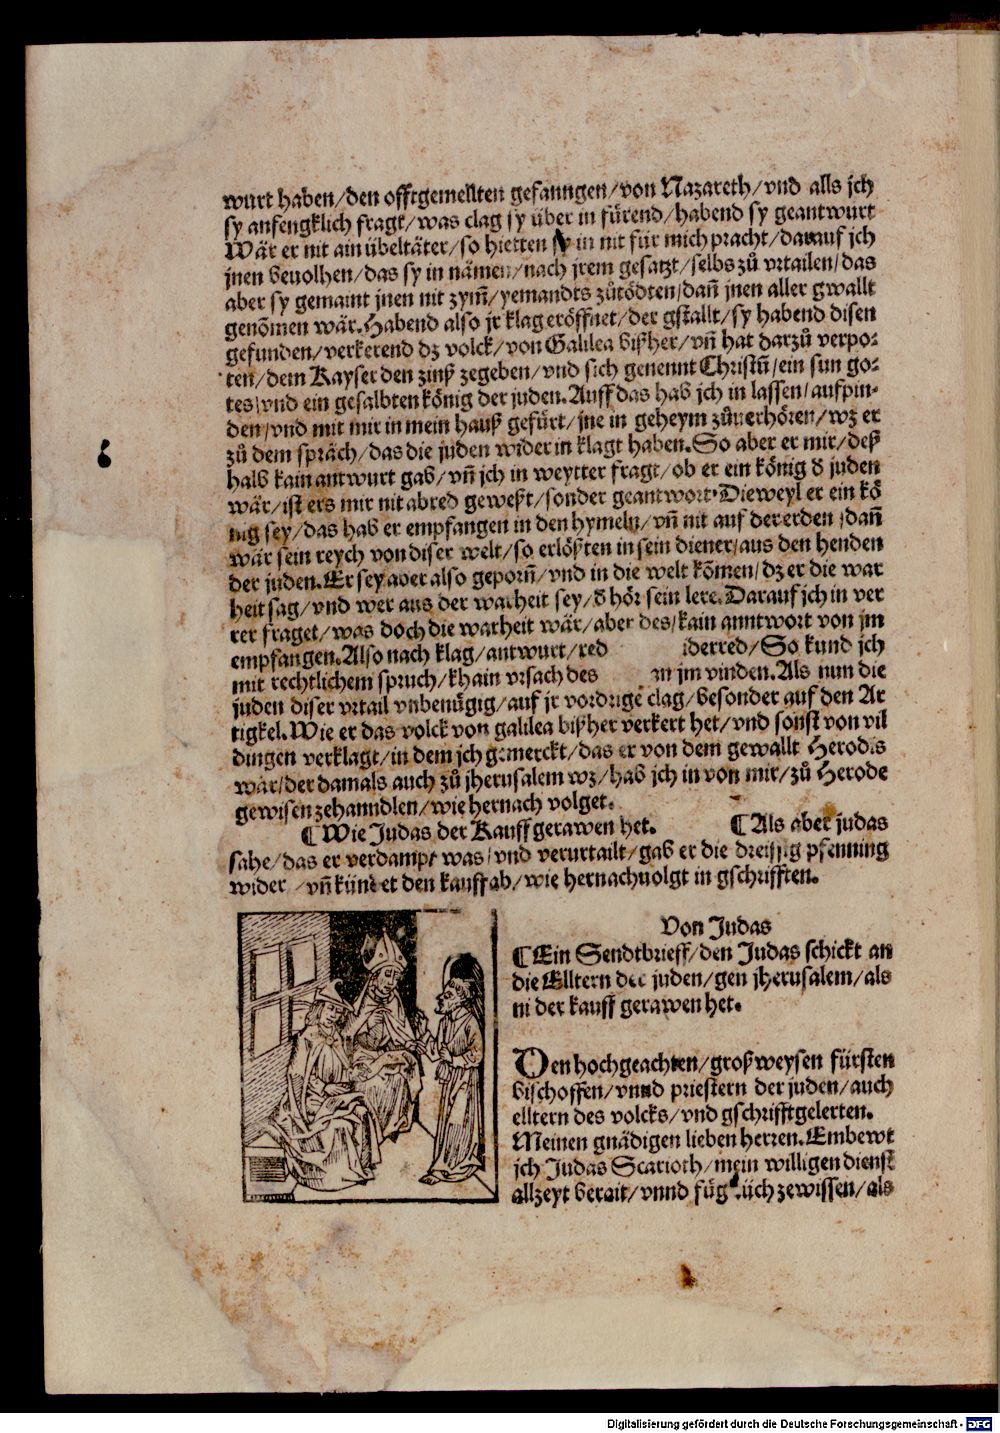 wurt haben/den offtgemellten gefanngen/von Nazareth/vnd alls jch
sy anfengklich fragt/was clag sy über in fürend/habend sy geantwurt
Wär er nit ain übeltäter/so hietten sy in nit für mich pracht/darauf jch
jnen beuolhen/das sy in nämen/nach jrem gesatzt/selbs zů vrtailen/das
aber sy gemaint jnen nit zym̃/yemandts zůtödten/dañ jnen aller gwallt
genõmen wär. Habend also jr klag eröffnet/der gstallt/sy habend disen
gefunden/verkerend dz volck/von Galilea bißher/vñ hat darzů verpo⸗
ten/dem Kayser den zinß zegeben/vnd sich genennt Christũ/ein sun go⸗
tes/vnd ein gesalbten könig der juden. Auff das hab jch in lassen/aufpin⸗
den/vnd mit mir in mein hauß gefürt/jne in geheym zůuerhören/wz er
zů dem spräch/das die juden wider in klagt haben. So aber er mir/deß
halb kain antwurt gab/vñ jch in weytter fragt/ob er ein könig d̕ juden
wär/ist ers mir nit abred geweßt/sonder geantwort. Dieweyl er ein kö
nig sey/das hab er empfangen in den hymeln/vñ nit auf der erden/dañ
wär sein reych von diser welt/so erlößten in sein diener/aus den henden
der juden. Er sey aber also geporñ/vnd in die welt kõmen/dz er die war
heit sag/vnd wer aus der warheit sey/d̕ hör sein lere. Darauf jch in ver
rer fraget/was doch die warheit wär/aber des/kain anntwort von jm
empfangen. Also nach klag/antwurt/red iderred/So kund jch
mit rechtlichem spruch/khain vrsach des in jm vinden. Als nun die
juden diser vrtail vnbenügig/auf jr vordrige clag/besonder auf den Ar
tigkel. Wie er das volck von galilea bißher verkert het/vnd sonst von vil
dingen verklagt/in dem jch gemerckt/das er von dem gewallt Herodis
wär/der damals auch zů jherusalem wz/hab jch in von mir/zů Herode
gewisen zehanndlen/wie hernach volget.
¶ Wie Judas der Kauff gerawen het. ¶ Als aber judas
sahe/das er verdampt was/vnd verurtailt/gab er die dreissig pfenning
wider/vñ kündet den kauff ab/wie hernachuolgt in gschrifften.
Von Judas
¶ Ein Sendtbrieff/den Judas schickt an
die Elltern der juden/gen jherusalem/als
in der kauff gerawen het.
Den hochgeachten/großweysen fürsten
bischoffen/vnnd priestern der juden/auch
elltern des volcks/vnd gschrifftgelerten.
Meinen gnädigen lieben herren. Embewt
jch Judas Scarioth/mein willigen dienst
allzeyt berait/vnnd füg üch zewissen/als
Digitalisierung gefördert durch die Deutsche Forschungsgemeinschaft - DFG